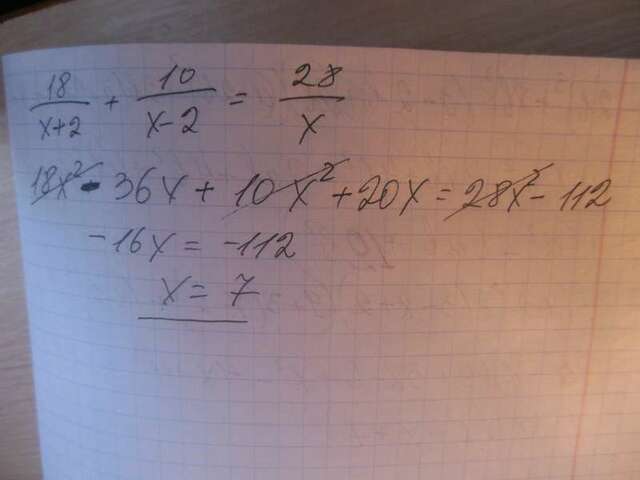 18/(x+2) + 10/(x-2) = 28/x
18x² - 36x + 10x² + 20x = 28x² - 112
-16x = -112
x = 7